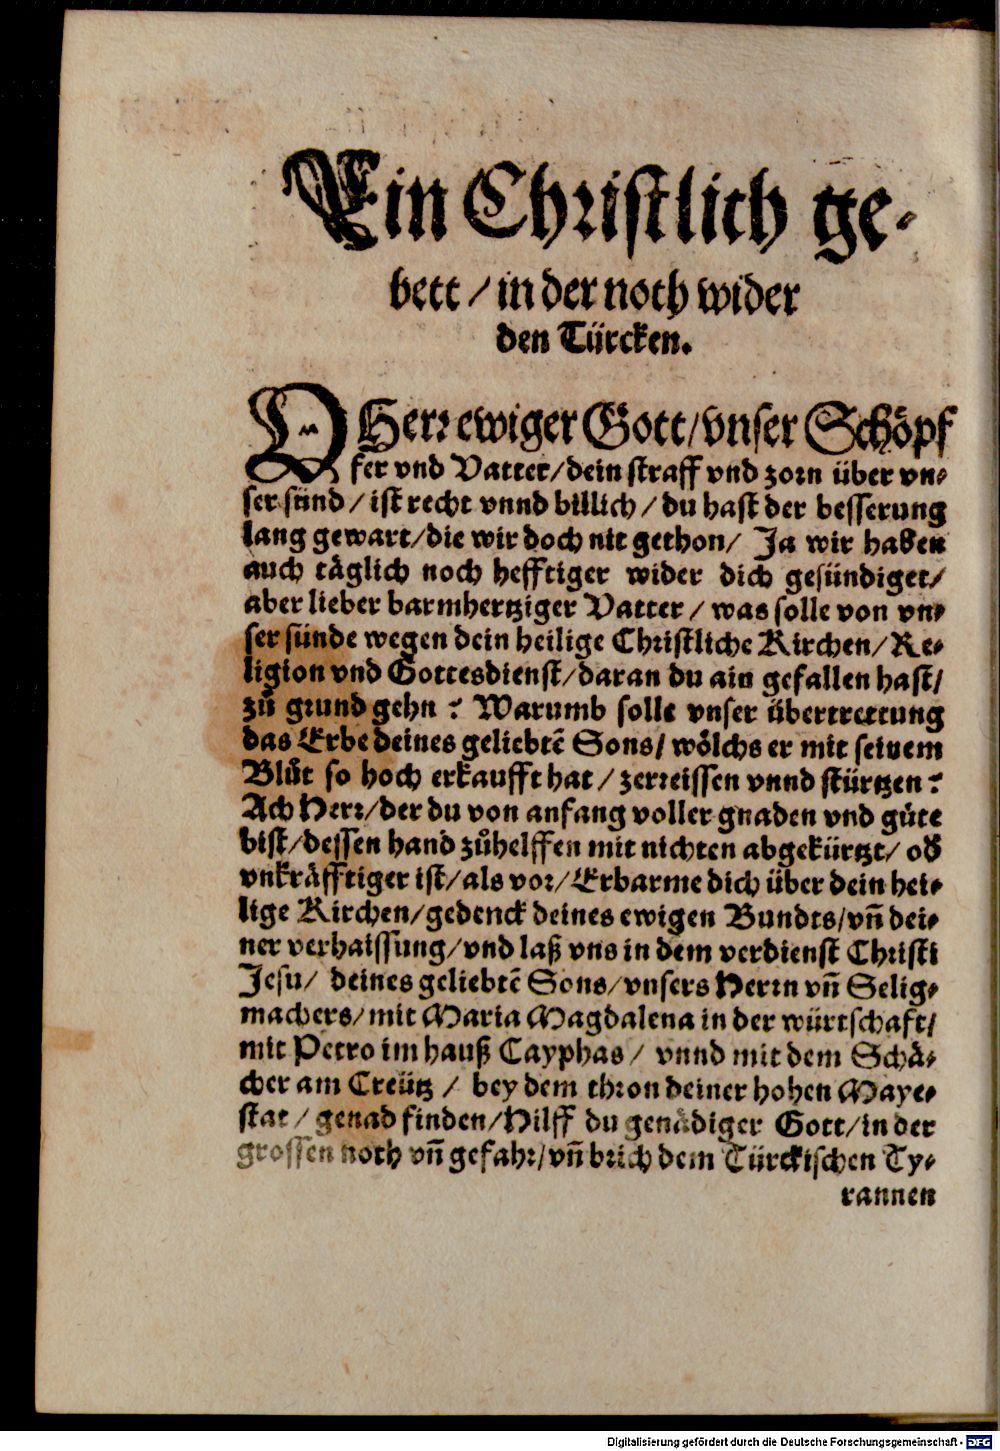 Ein Christlich ge-
bett / in der noth wider
den Türcken.
O Herr ewiger Gott / vnser Schöpf
fer vnd Vatter / dein straff vnd zorn über vn-
ser sünd / ist recht vnnd billich / du hast der besserung
lang gewart / die wir doch nit gethon / Ja wir haben
auch täglich noch hefftiger wider dich gesündiget /
aber lieber barmhertziger Vatter / was solle von vn-
ser sünde wegen dein heilige Christliche Kirchen / Re-
ligion vnd Gottesdienst / daran du ain gefallen hast /
zů grund gehn ? Warumb solle vnser übertrettung
das Erbe deines geliebtẽ Sons / wölchs er mit seinem
Blůt so hoch erkaufft hat / zerreissen vnnd stürtzen ?
Ach Herr / der du von anfang voller gnaden vnd güte
bist / dessen hand zůhelffen mit nichten abgekürtzt / ob
vnkräfftiger ist / als vor / Erbarme dich über dein hei-
lige Kirchen / gedenck deines ewigen Bundts / vñ dei-
ner verhaissung / vnd laß vns in dem verdienst Christi
Jesu / deines geliebtẽ Sons / vnsers Herrn vñ Selig-
machers / mit Maria Magdalena in der würtschaft /
mit Petro im hauß Cayphas / vnnd mit dem Schä-
cher am Creütz / bey dem thron deiner hohen Maye-
stat / genad finden / Hilff du genädiger Gott / in der
grossen noth vñ gefahr / vñ brich dem Türckischen Ty-
rannen
Digitalisierung gefördert durch die Deutsche Forschungsgemeinschaft - DFG